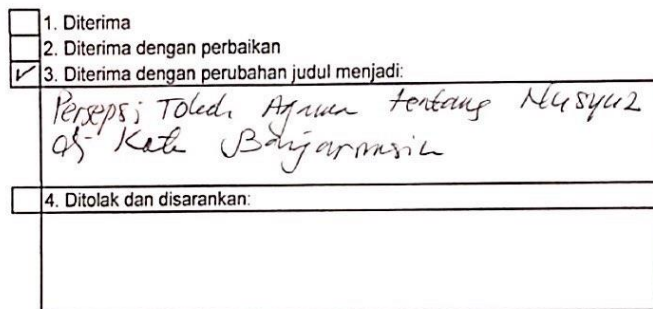 1. Diterima
2. Diterima dengan perbaikan
✓ 3. Diterima dengan perubahan judul menjadi:
Persepsi Tokoh Agama tentang Nusyuz
di Kota Banjarmasin
4. Ditolak dan disarankan: